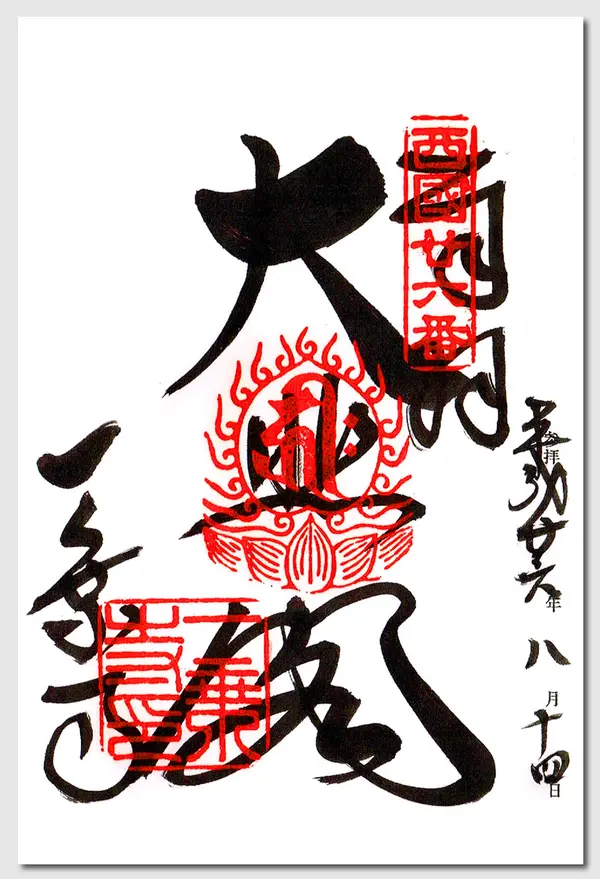 西國廿六番
拝
平成廿六年八月十四日
大悲閣
一乗寺
一乘寺印